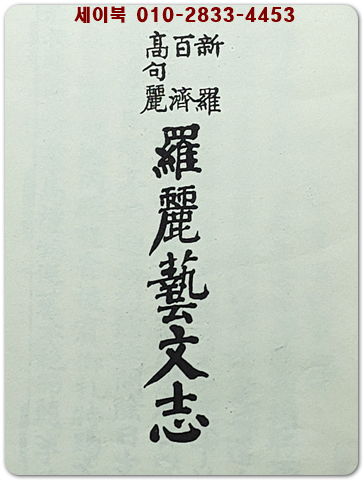 세이북 010-2833-4453
新羅
百濟
高句麗
羅麗藝文志